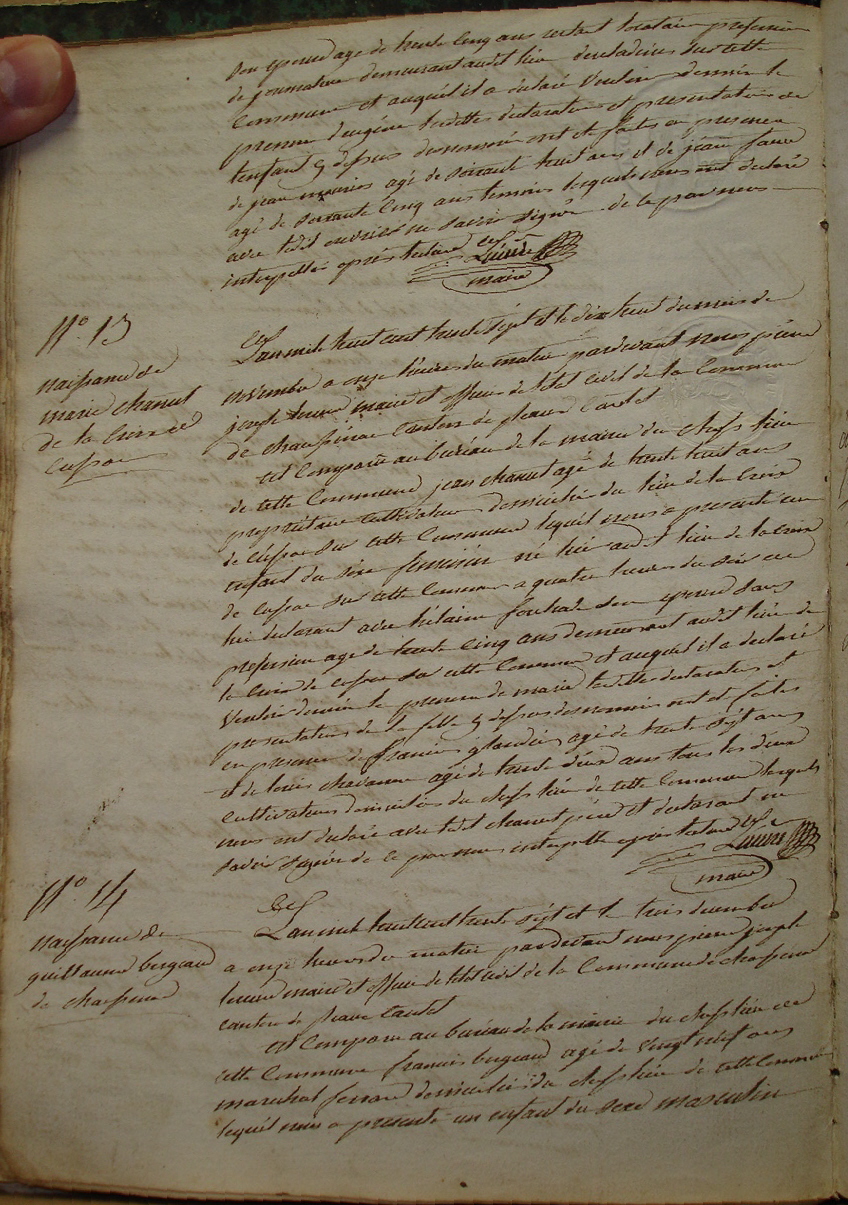 son epouse age de trente cinq ans restant locataire profession
de journalieu demeurant audit lieu descladines sur cette
Commune et auquel il a declaré Vouloir donner le
prenom deugène lesdittes declaration et presentation de
lenfant cy dessus denommé ont eté faites en presence
de jean mouries agé de soixante huit ans et de jean faure
agé de soixante Cinq ans temoins lesquels nous ont declaré
avec ledit ouvrier ne savoir signer de ce par nous
interpellés après lecture
maire
N° 13
naissance de
marie chanut
de la Croix de
Cussac
Lan mil huit cent trente sept et le dix huit du mois de
novembre a onze heures du matin pardevant nous pierre
joseph maire et officier de letat Civil de la Commune
de chaussenac Canton de pleaux Cantal
est Comparu au bureau de la mairie du cheflieu
de cette Commune jean chanut agé de trente huit ans
propriétaire Cultivateur domicilié du lieu de la Croix
de Cussac sur cette Commune lequel nous a presenté un
enfant du sexe feminin né hier audit lieu de la Croix
de Cussac sur cette Commune a quatre heures du soir de
lui declarant avec helaine son epouse sans
profession age de trente Cinq ans demeurant audit lieu de
la Croix de Cussac sur cette Commune et auquel il a declaré
Vouloir donner le prenom de marie lesdittes declaration et
presentation de la fille cy dessus denommée ont eté faites
en presence de francois agé de trente sept ans
et de louis chavanne agé de trente deux ans tous les deux
Cultivateurs domiciliés du cheflieu de cette Commune lesquels
nous ont declaré avec ledit chanut père et declarant ne
savoir signer de ce par nous interpellé après lecture
maire
N° 14
naissance de
guillaume bergeaud
de chaussenac
Lan mil huit cent trente sept et le trois decembre
a onze heures du matin pardevant nous pierre joseph
maire et officier de letat Civil de la Commune de chaussenac
canton de pleaux Cantal
est Comparu au bureau de la mairie du cheflieu de
cette Commune francois bergeaud agé de Vingt neuf ans
marechal ferrant domicilié du cheflieu de cette Commune
lequel nous a presenté un enfant du sexe masculin